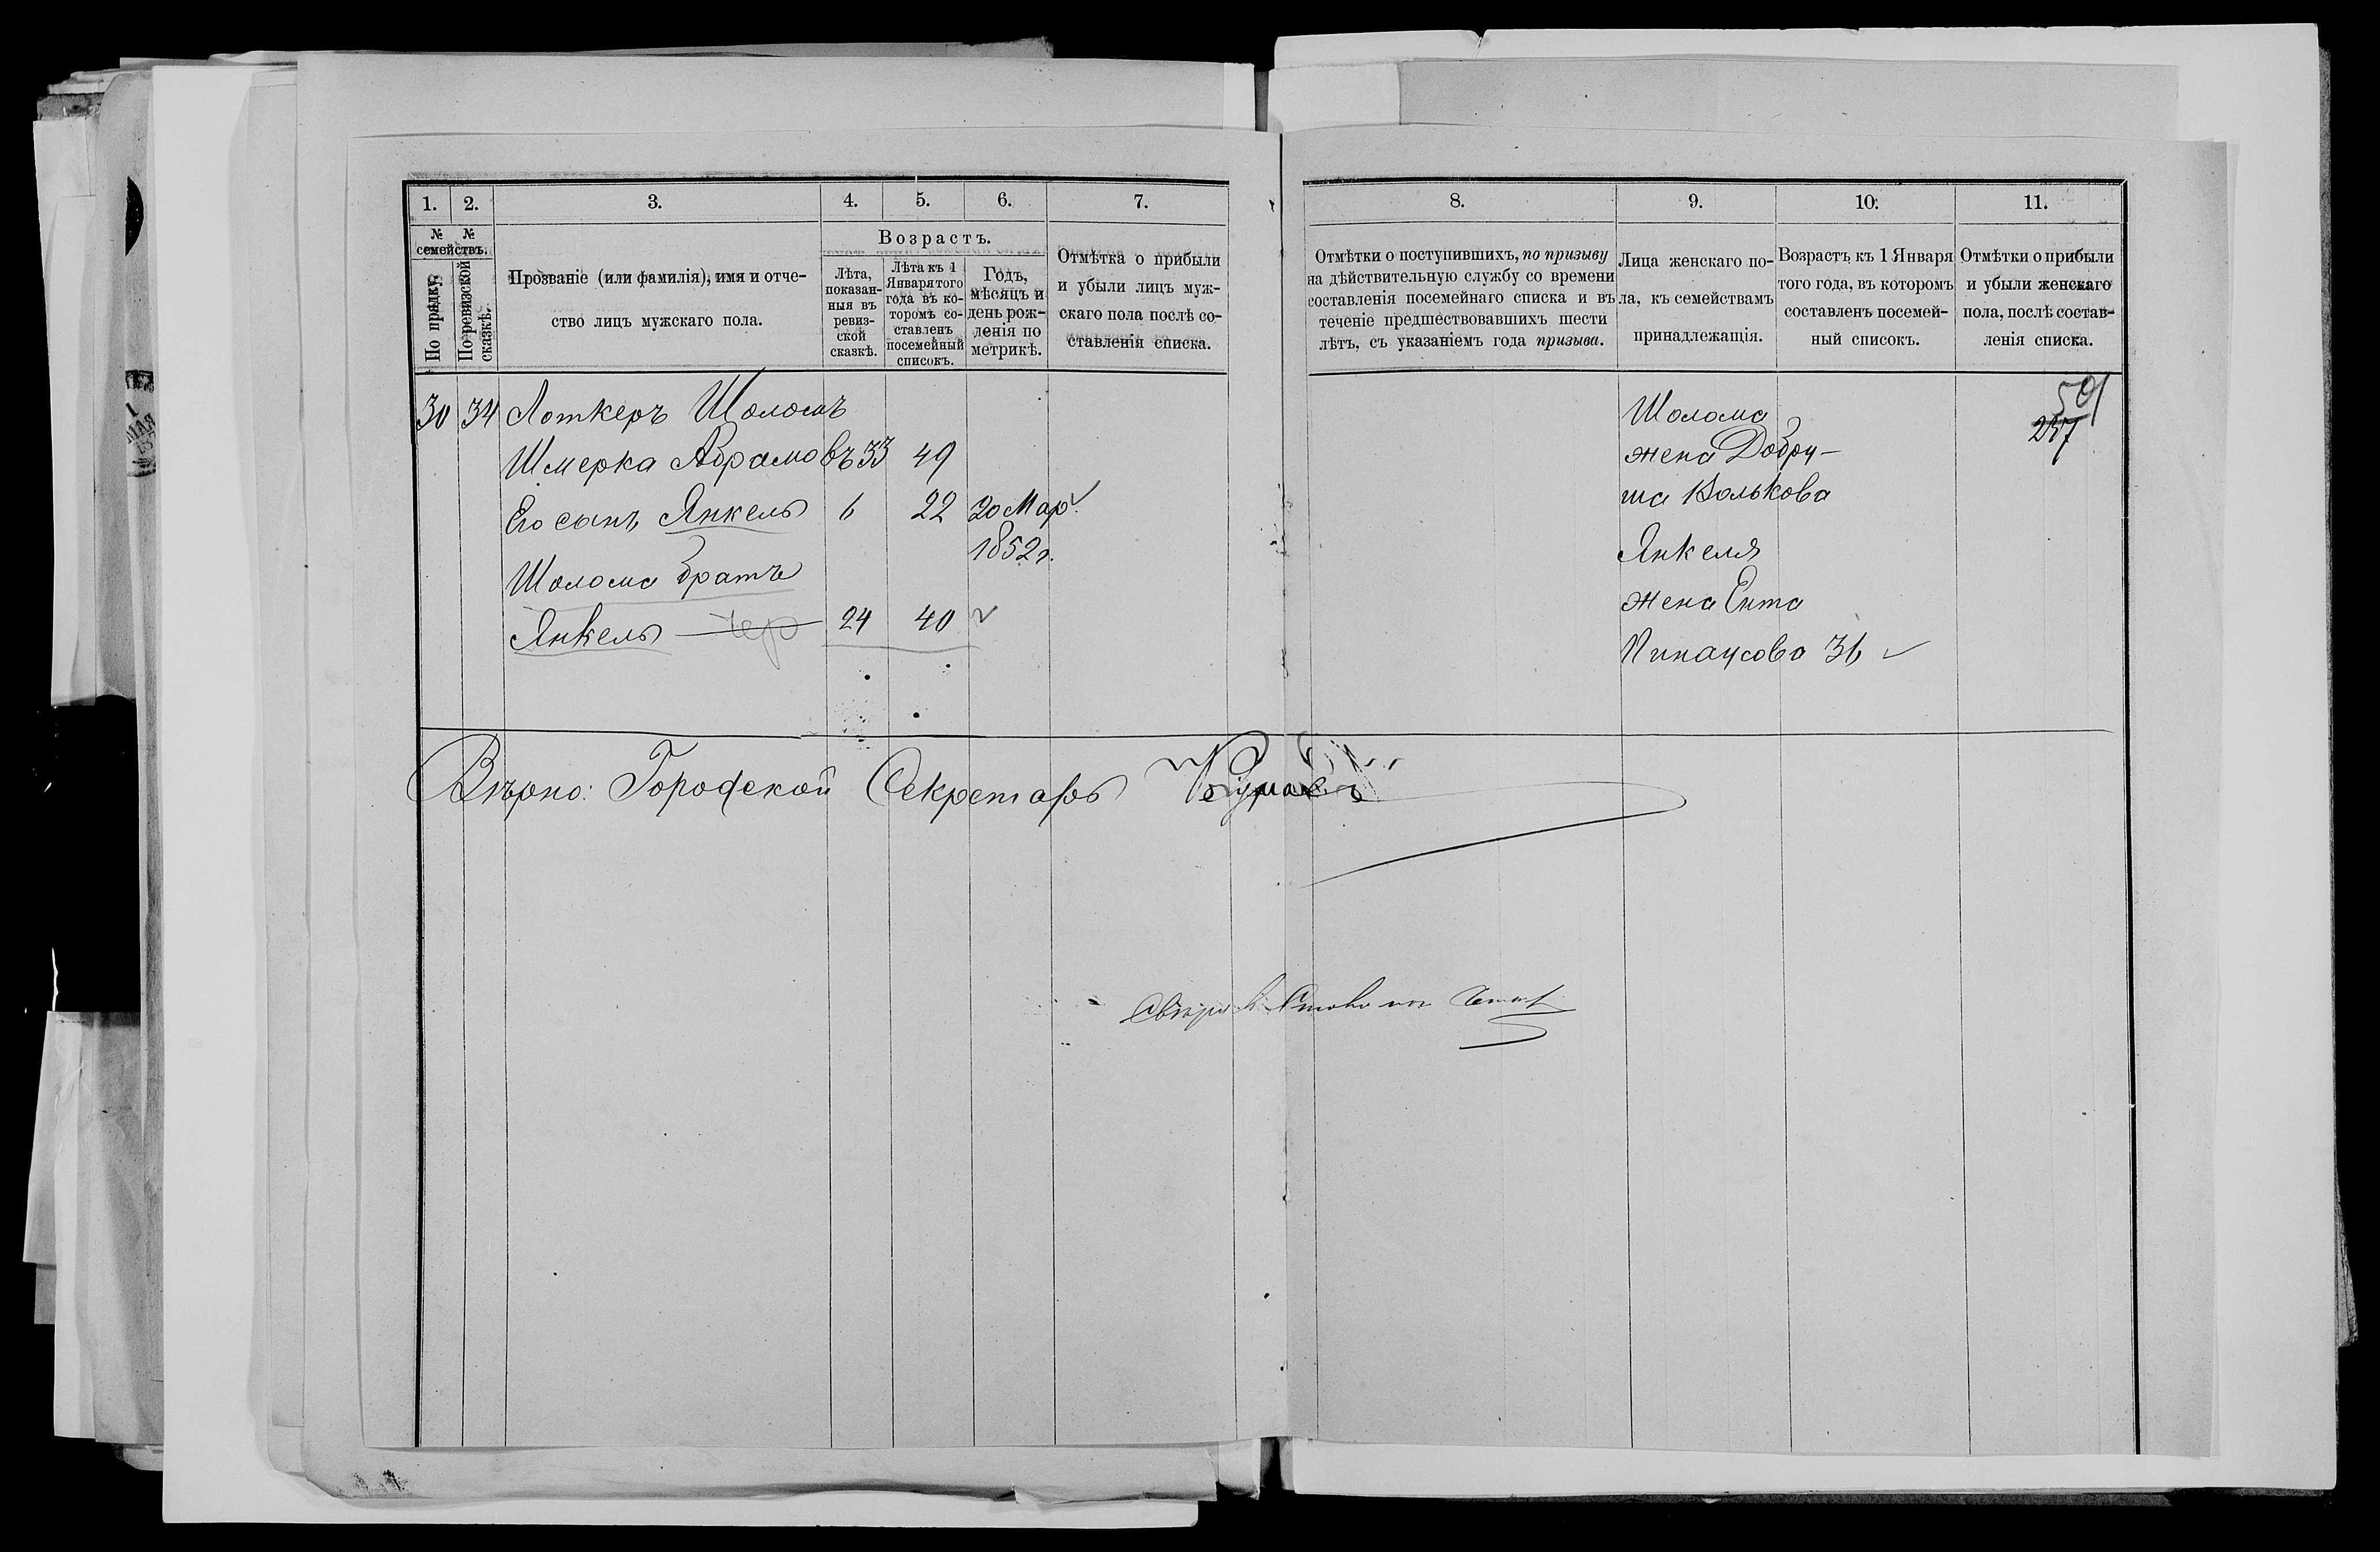 1. 2. 3. 4. 5. 6. 7. 8. 9. 10. 11.
№ № семействъ.
По прядку.
По ревизской сказкѣ.
Прозваніе (или фамилія), имя и отче-
ство лицъ мужскаго пола.
Возрастъ.
Лѣта,
показан-
ныя въ
ревиз-
ской
сказкѣ.
Лѣта къ 1
Января того
года въ ко-
торомъ со-
ставленъ
посемейный
списокъ.
Годъ,
мѣсяцъ и
день рож-
ленія по
метрикѣ.
Отмѣтка о прибыли
и убыли лицъ муж-
скаго пола послѣ со-
ставленія списка.
Отмѣтки о поступившихъ, по призыву
на дѣйствительную службу со времени
составленія посемейнаго списка и въ
теченіе предшествовавшихъ шести
лѣтъ, съ указаніемъ года призыва.
Лица женскаго по-
ла, къ семействамъ
принадлежащія.
Возрастъ къ 1 Января
того года, въ которомъ
составленъ посемей-
ный списокъ.
Отмѣтки о прибыли
и убыли женскаго
пола, послѣ состав-
ленія списка.
30 34 Лоткеръ Шоломъ
Шмерка Абрамовъ 33 49
Его сынъ Янкель 6 22 20 Мар.
1852 г.
Шолома братъ
Янкель 24 40
Шолома
жена Добру-
ша Волькова
Янкеля
жена Ента
Пинаусова 36
501
247
Вѣрно: Городской Секретарь